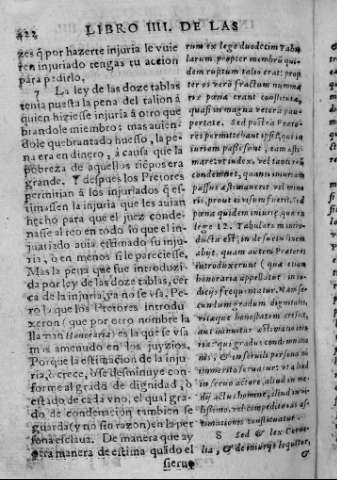 422 LIBRO IIII. DE LAS
zes q̃ por hazerte injuria le vuie
ren injuriado tengas tu accion
para pedirlo.
7 La ley de las doze tablas
tenia puesta la pena del talion á
quien hiziesse injuria á otro que
brandole miembro: mas auien-
dole quebrantado huesso, la pe
na era en dinero, á causa que la
pobreza de aquellos tiẽpos era
grande. Y despues los Pretores
permitian á los injuriados q̃ es
timassen la injuria que les auian
hecho para que el juez conde
nasse al reo en todo lo que el in-
juriado auia estimado su inju-
ria, ò en menos si le pareciesse.
Mas la pena que fue introduzi
da por ley de las doze tablas, cer
ca de la injuria, ya no se vsa. Pe
ro la que los Pretores introdu
xeron (que por otro nombre la
llaman Honoraria) es la que se vsa
mas amenudo en los juyzios.
Porque la estimacion de la inju
ria, ò crece, ò se desminuye con-
forme al grado de dignidad, ò
estado de cada vno, el qual gra-
do de condenacion tambien se
guarda (y no sin razon) en la per
sona esclaua. De manera que ay
otra manera de estima quãdo el
sieruo
rum ex lege duodecim Tabu
larum propter membrũ qui-
dem ruptum talio erat: prop
ter os verò fractum numma
riæ pœna erant constitutæ,
quasi in magna veterũ pau-
pertate. Sed postea Prætores
permittebant ipsis, qui in
iuriam passi sunt, eam æsti-
mare: vt iudex, vel tanti reũ
condemnet, quanti iniuriam
passus æstimauerit vel mino
ris, prout ei visum fuerit. Sed
pœna quidem iniuriæ, quæ ex
lege 12. Tabularum intro-
ducta est, in desuetudinem
abijt. quam autem Prætores
introduxerunt (quæ etiam
honoraria appellatur) in iu-
dicijs frequentatur. Nam se-
cundum gradum dignitatis,
vitæque honestatem crescit,
aut minuitur æstimatio iniu
riæ: qui gradus condemnatio
nis, & in seruili persona non
immeritò seruatur: vt aliud
in seruo actore, aliud in me-
dij actus homine, aliud in vi-
lissimo, vel compedito ius æs-
timationis constituatur.
8 Sed & lex Corne
lia, & de iniurijs loquitur,